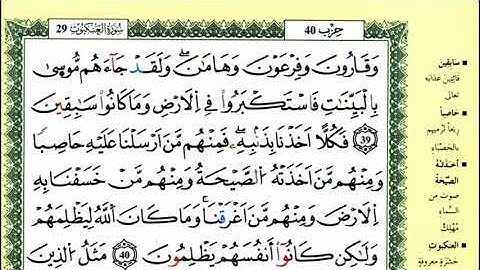 سُورَةُ العَنكَبُوت 29
حِزْب 40
وَقَارُونَ وَفِرْعَوْنَ وَهَامَانَ ۖ وَلَقَدْ جَاءَهُم مُّوسَىٰ
بِالْبَيِّنَاتِ فَاسْتَكْبَرُوا۟ فِي اِ۬لَارْضِ وَمَا كَانُوا۟ سَابِقِينَ
39 فَكُلًّا اَخَذْنَا بِذَنۢبِهِۦ ۖ فَمِنْهُم مَّنَ اَرْسَلْنَا عَلَيْهِ حَاصِبًا
وَمِنْهُم مَّنَ اَخَذَتْهُ اُ۬لصَّيْحَةُ وَمِنْهُم مَّنْ خَسَفْنَا بِهِ
اِ۬لَارْضَ وَمِنْهُم مَّنَ اَغْرَقْنَا ۚ وَمَا كَانَ اَ۬للَّهُ لِيَظْلِمَهُمْ
وَلَٰكِن كَانُوا۟ أَنفُسَهُمْ يَظْلِمُونَ 40 مَثَلُ اُ۬لذِينَ
سَابِقِينَ
فَائِتِينَ عَذَابَهُ
تعالى
حَاصِبًا
رِيحًا تَرْمِيهِم
بِالحَصْبَاءِ
أَخَذَتْهُ
الصَّيْحَةُ
صوت من
السَّماءِ
مُهْلِكٌ
العَنكَبُوت
حَشَرَةٌ معروفةٌ